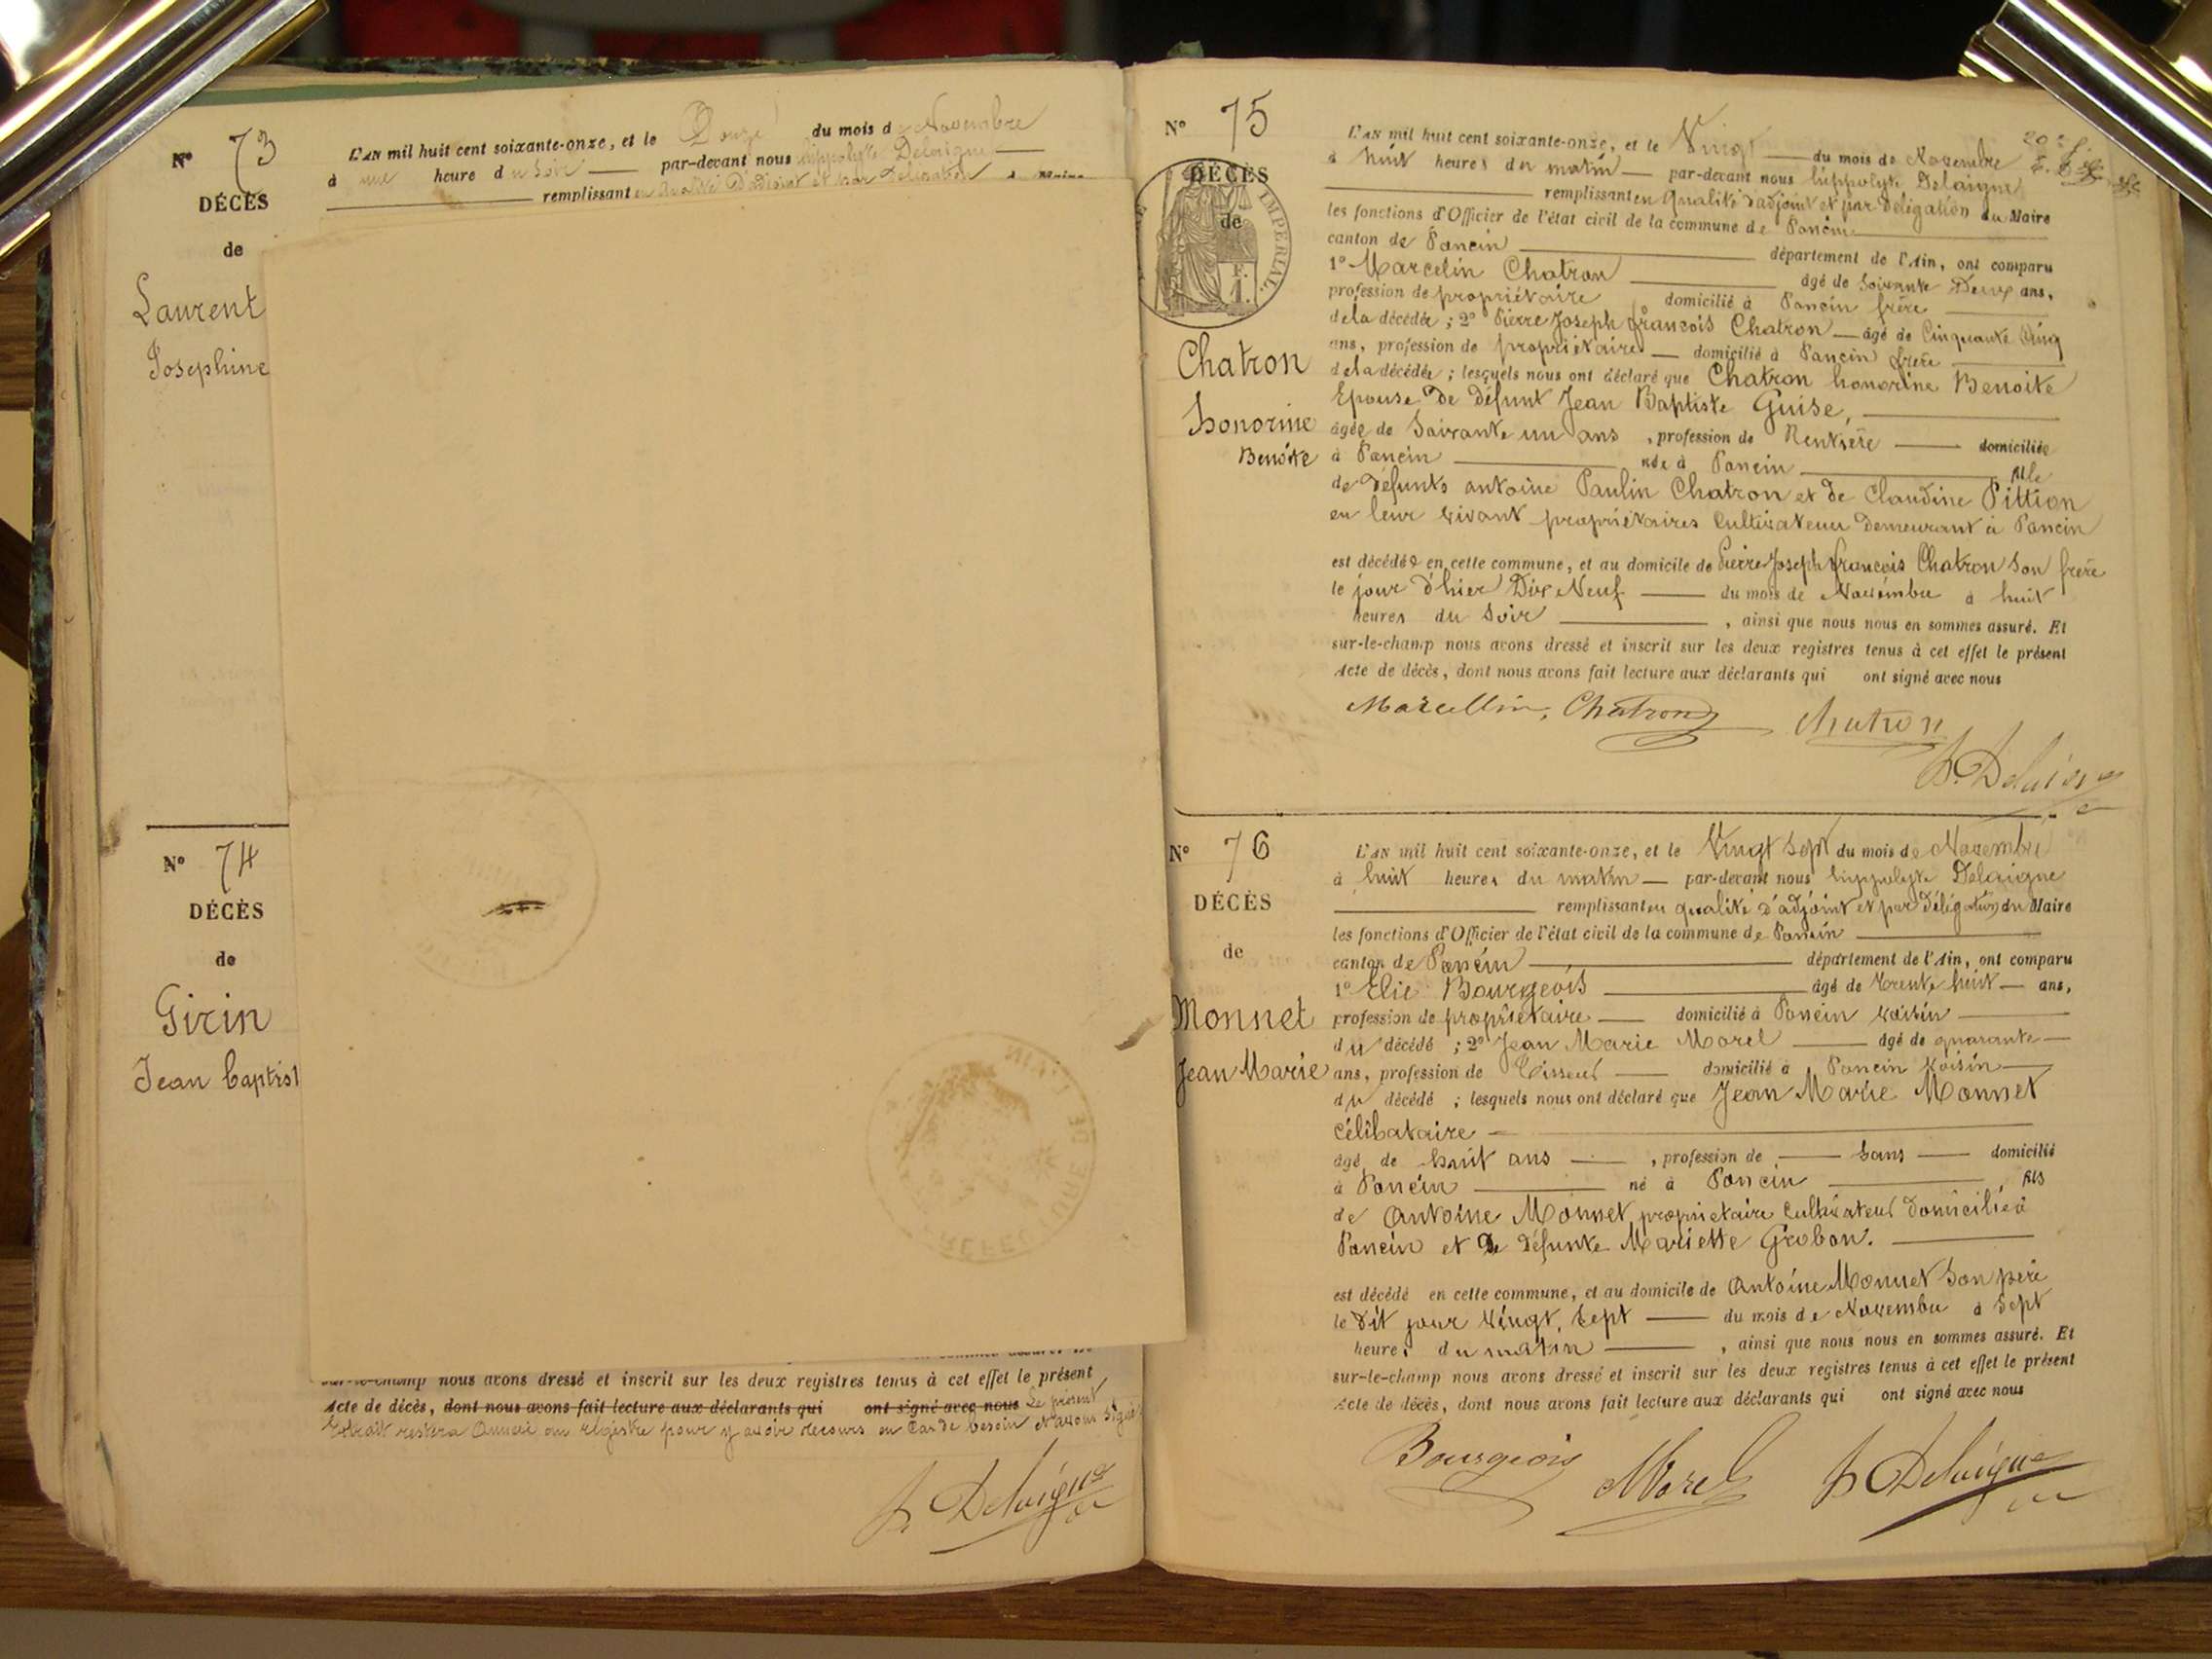 Nº 73
DÉCÈS
de
Laurent
Josephine
L'AN mil huit cent soixante-onze, et le Douze du mois de Novembre
à une heure du Soir par-devant nous hippolyte Delaigue
remplissant en qualité d'adjoint et par délégation du Maire
Nº 74
DÉCÈS
de
Girin
Jean baptist
sur-le-champ nous avons dressé et inscrit sur les deux registres tenus à cet effet le présent
Acte de décès, dont nous avons fait lecture aux déclarants qui ont signé avec nous Le présent
Extrait restera Annexé au registre pour y avoir recours en Cas de besoin et avons Signé
h Delaigue
Nº 75
DÉCÈS
de
IMPERIAL
F.
1.
Chatron
honorine
Benoite
L'AN mil huit cent soixante-onze, et le Vingt du mois de Novembre
à huit heures du matin par-devant nous hippolyte Delaigue
remplissant en qualité d'adjoint et par délégation du Maire
les fonctions d'Officier de l'état civil de la commune de Poncin
canton de Poncin département de l'Ain, ont comparu
1º Marcelin Chatron âgé de Soixante Deux ans,
profession de propriétaire domicilié à Poncin frère
de la décédée ; 2º Pierre Joseph françois Chatron âgé de Cinquante Cinq
ans, profession de propriétaire domicilié à Poncin frère
de la décédée ; lesquels nous ont déclaré que Chatron honorine Benoite
Epouse de défunt Jean Baptiste Guise,
âgée de Soixante un ans , profession de Rentière domiciliée
à Poncin née à Poncin fille
de défunts antoine Paulin Chatron et de Claudine Pittion
en leur vivant propriétaires Cultivateurs Demeurant à Poncin
est décédée en cette commune, et au domicile de Pierre Joseph françois Chatron Son frère
le jour d'hier Dix Neuf du mois de Novembre à huit
heures du Soir , ainsi que nous nous en sommes assuré. Et
sur-le-champ nous avons dressé et inscrit sur les deux registres tenus à cet effet le présent
Acte de décès, dont nous avons fait lecture aux déclarants qui ont signé avec nous
Marcellin, Chatron Chatron
h. Delaigue
Nº 76
DÉCÈS
de
Monnet
Jean Marie
L'AN mil huit cent soixante-onze, et le Vingt Sept du mois de Novembre
à huit heures du matin par-devant nous hippolyte Delaigue
remplissant en qualité d'adjoint et par délégation du Maire
les fonctions d'Officier de l'état civil de la commune de Poncin
canton de Poncin département de l'Ain, ont comparu
1º Elie Bourgeois âgé de trente huit ans,
profession de propriétaire domicilié à Poncin voisin
du décédé ; 2º Jean Marie Morel âgé de quarante
ans, profession de Tisseur domicilié à Poncin Voisin
du décédé ; lesquels nous ont déclaré que Jean Marie Monnet
Célibataire
âgé de huit ans , profession de Sans domicilié
à Poncin né à Poncin , fils
de Antoine Monnet propriétaire Cultivateur domicilié à
Poncin et de défunte Mariette Grobon.
est décédé en cette commune, et au domicile de Antoine Monnet Son père
le dit jour Vingt, Sept du mois de Novembre à Sept
heures du matin , ainsi que nous nous en sommes assuré. Et
sur-le-champ nous avons dressé et inscrit sur les deux registres tenus à cet effet le présent
Acte de décès, dont nous avons fait lecture aux déclarants qui ont signé avec nous
Bourgeois Morel h Delaigue